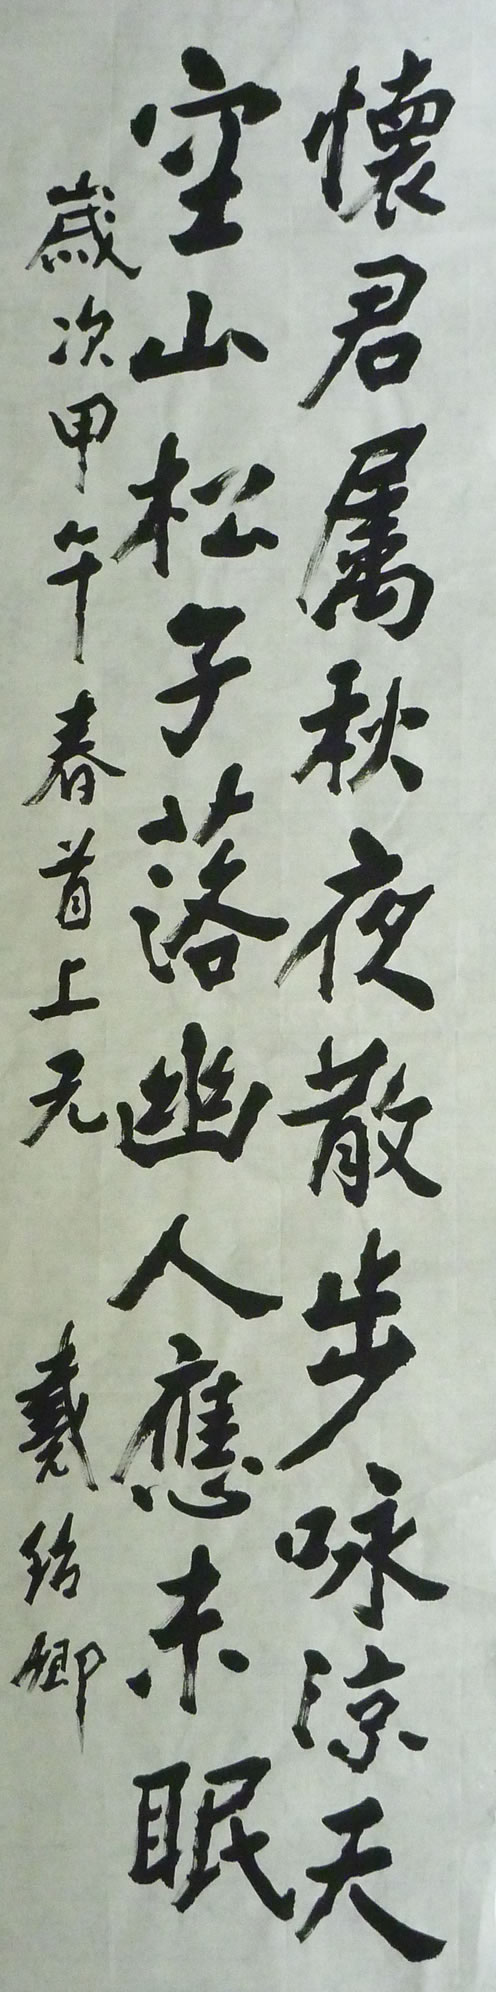 懷君属秋夜散步咏涼天
空山松子落幽人應未眠
歲次甲午春首上元 卿